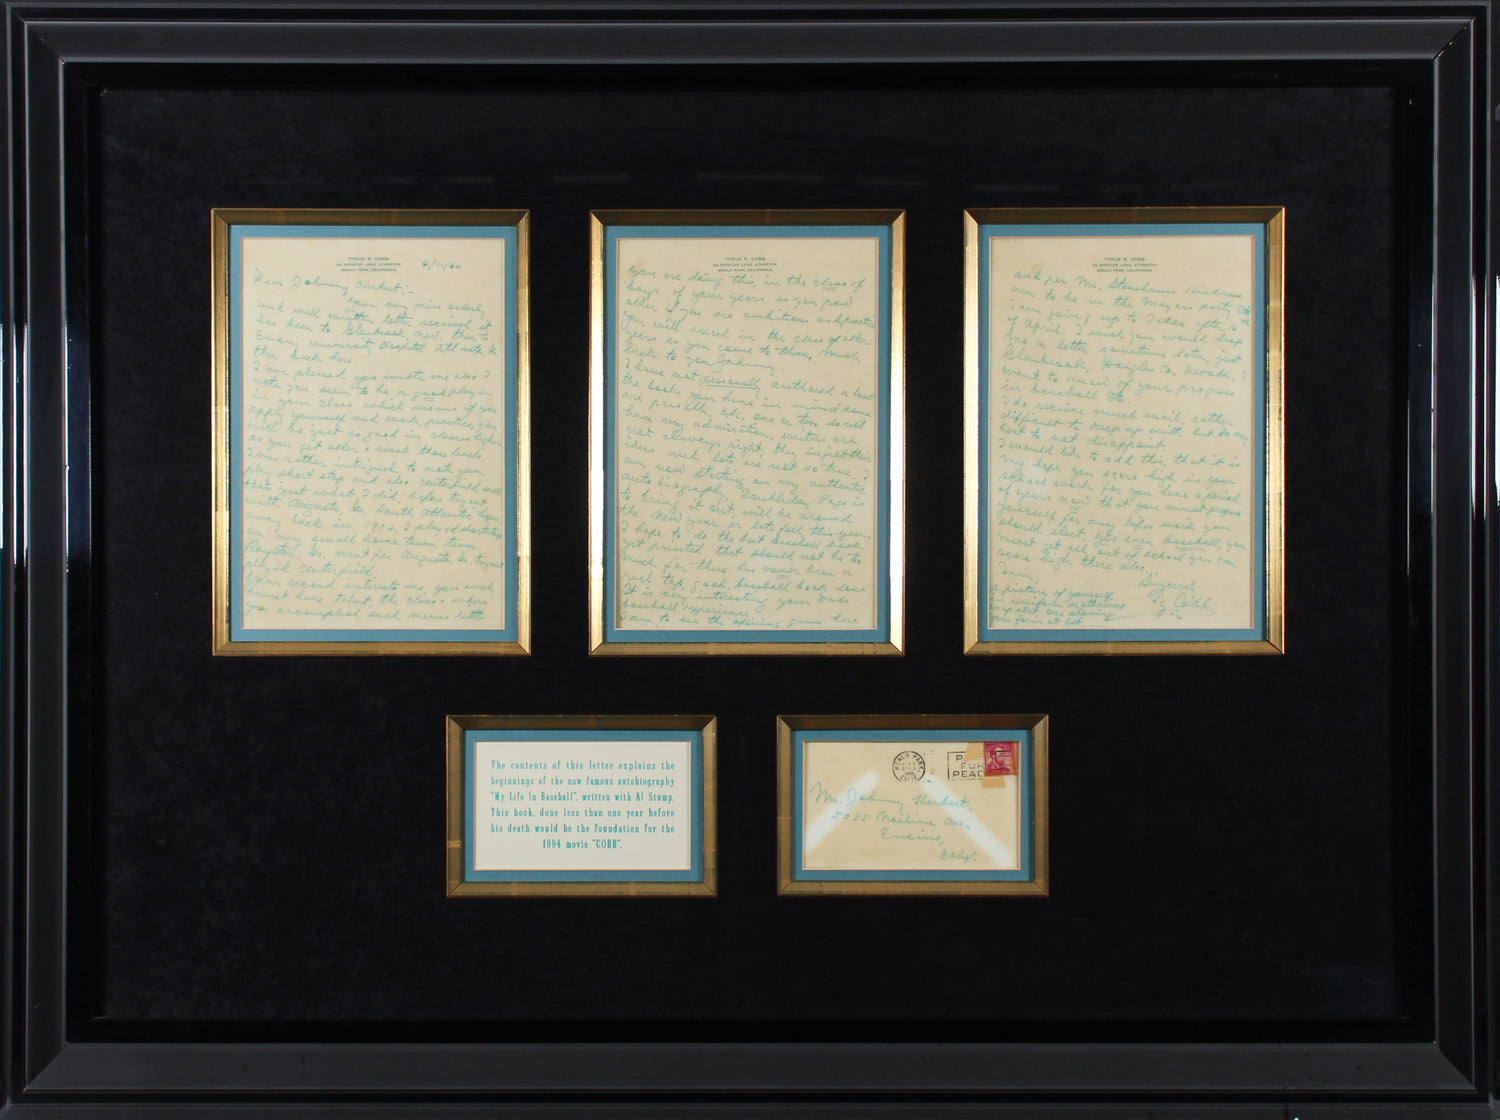 TYRUS R. COBB
48 SPENCER LANE, ATHERTON
MENLO PARK, CALIFORNIA
4/11/60
Dear Johnny Herbert:-
Your very nice orderly
and well written letter received it
has been to Glenbrook Nev. then to
Emory University Hospital Atlanta, Ga.
then back here.
I am pleased you wrote me also I
note you seem to be a good player
in your class which means if you
apply yourself and work, practice, you
will be just as good in classes higher
as you get older & reach those levels.
I was rather intrigued to note you
play short stop and also centerfield, well
thats just what I did, before try out
with Augusta, Ga. South Atlantic league
away back in 1904, I played shortstop
on my small home town team
Royston, Ga. went for Augusta Ga. try out
played centerfield
Your record interests me, you surely
must have talent the class & where
you accomplish such means little
TYRUS R. COBB
48 SPENCER LANE, ATHERTON
MENLO PARK, CALIFORNIA
you are doing this, in the class of
boys of your years, as you grow
older if you are ambitious and practice
you will excel in the class of older
years as you come to them, much
luck to you Johnny.
I have not personally authored a book
the books you have in mind some
are possibly, o.k. one or two do not
have my admiration, writers are
not always right, they inject their
ideas and lot are not so true, I
am now starting on my authentic
auto biography, Doubleday Page is
to bring it out, will be around
the New year or late fall this year,
I hope to do the best baseball book
yet printed that should not be too
much for there has never been a
real top, good, baseball book done.
It is very interesting your Dads
baseball experience.
I am to see the opening game here
TYRUS R. COBB
48 SPENCER LANE, ATHERTON
MENLO PARK, CALIFORNIA
and per Mr. Stonehams kindness
am to be in the Mayors party etc
I am going up to Tahoe after
of April. I wish you would drop
me a letter sometime later, just
Glenbrook, Douglas Co. Nevada, I
want to know of your progress
in baseball etc
I do receive much mail, rather
difficult to keep up with but do my
best to not disappoint.
I would like to add this, that it is
my hope you score high in your
school work for you have a period
of years now that you must prepare
yourself for any lifes work you
should elect yes even baseball, you
must get all out of school you can.
score high there also.
I am,
Sincerely
Ty Cobb
a picture of yourself
in uniform or otherwise
snap shot one showing
you form at bat.
The contents of this letter explains the
beginnings of the now famous autobiography
"My Life In Baseball", written with Al Stump.
This book, done less than one year before
his death would be the foundation for the
1994 movie "COBB".
MENLO PARK
1960
CALIF
P
FOR
PEAC
Mr. Johnny Herbert,
5035 Ave.,
Encino,
Calif.